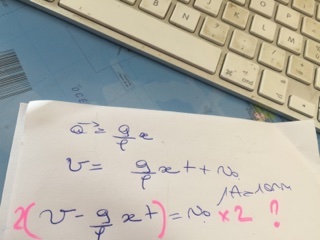 a⃗ = g/ρ x
v = g/ρ x t + v₀
1A=10m
2(v - g/ρ x t) = v₀ ×2 ?